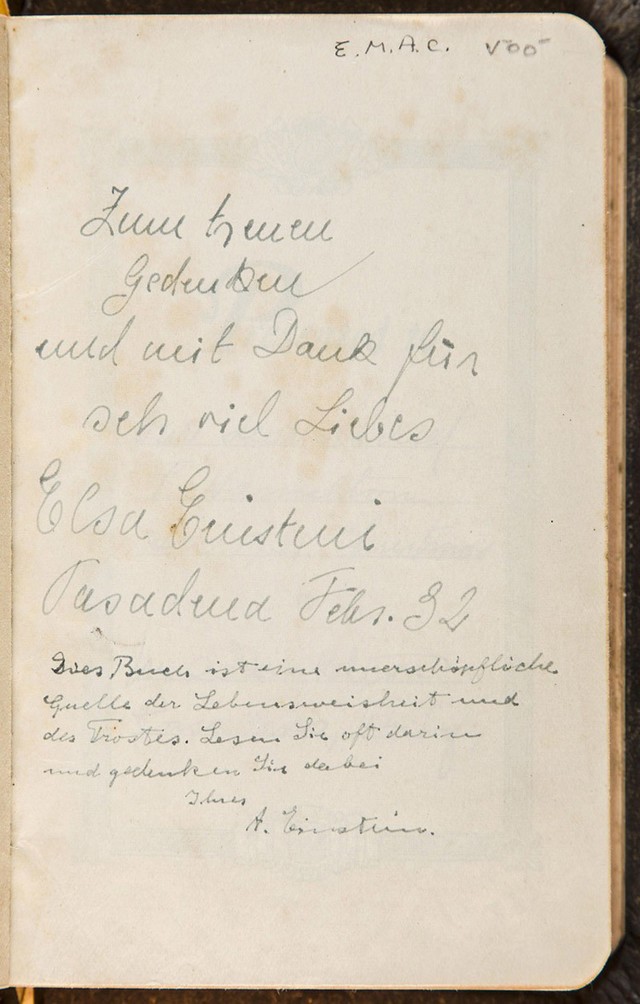 E. M. A. C.
Zum treuen
Gedenken
und mit Dank für
sehr viel Liebes
Elsa Einstein
Pasadena Febr. 32
Dies Buch ist eine unerschöpfliche
Quelle der Lebensweisheit und
des Trostes. Lesen Sie oft darin
und gedenken Sie dabei
Ihres
A. Einstein.